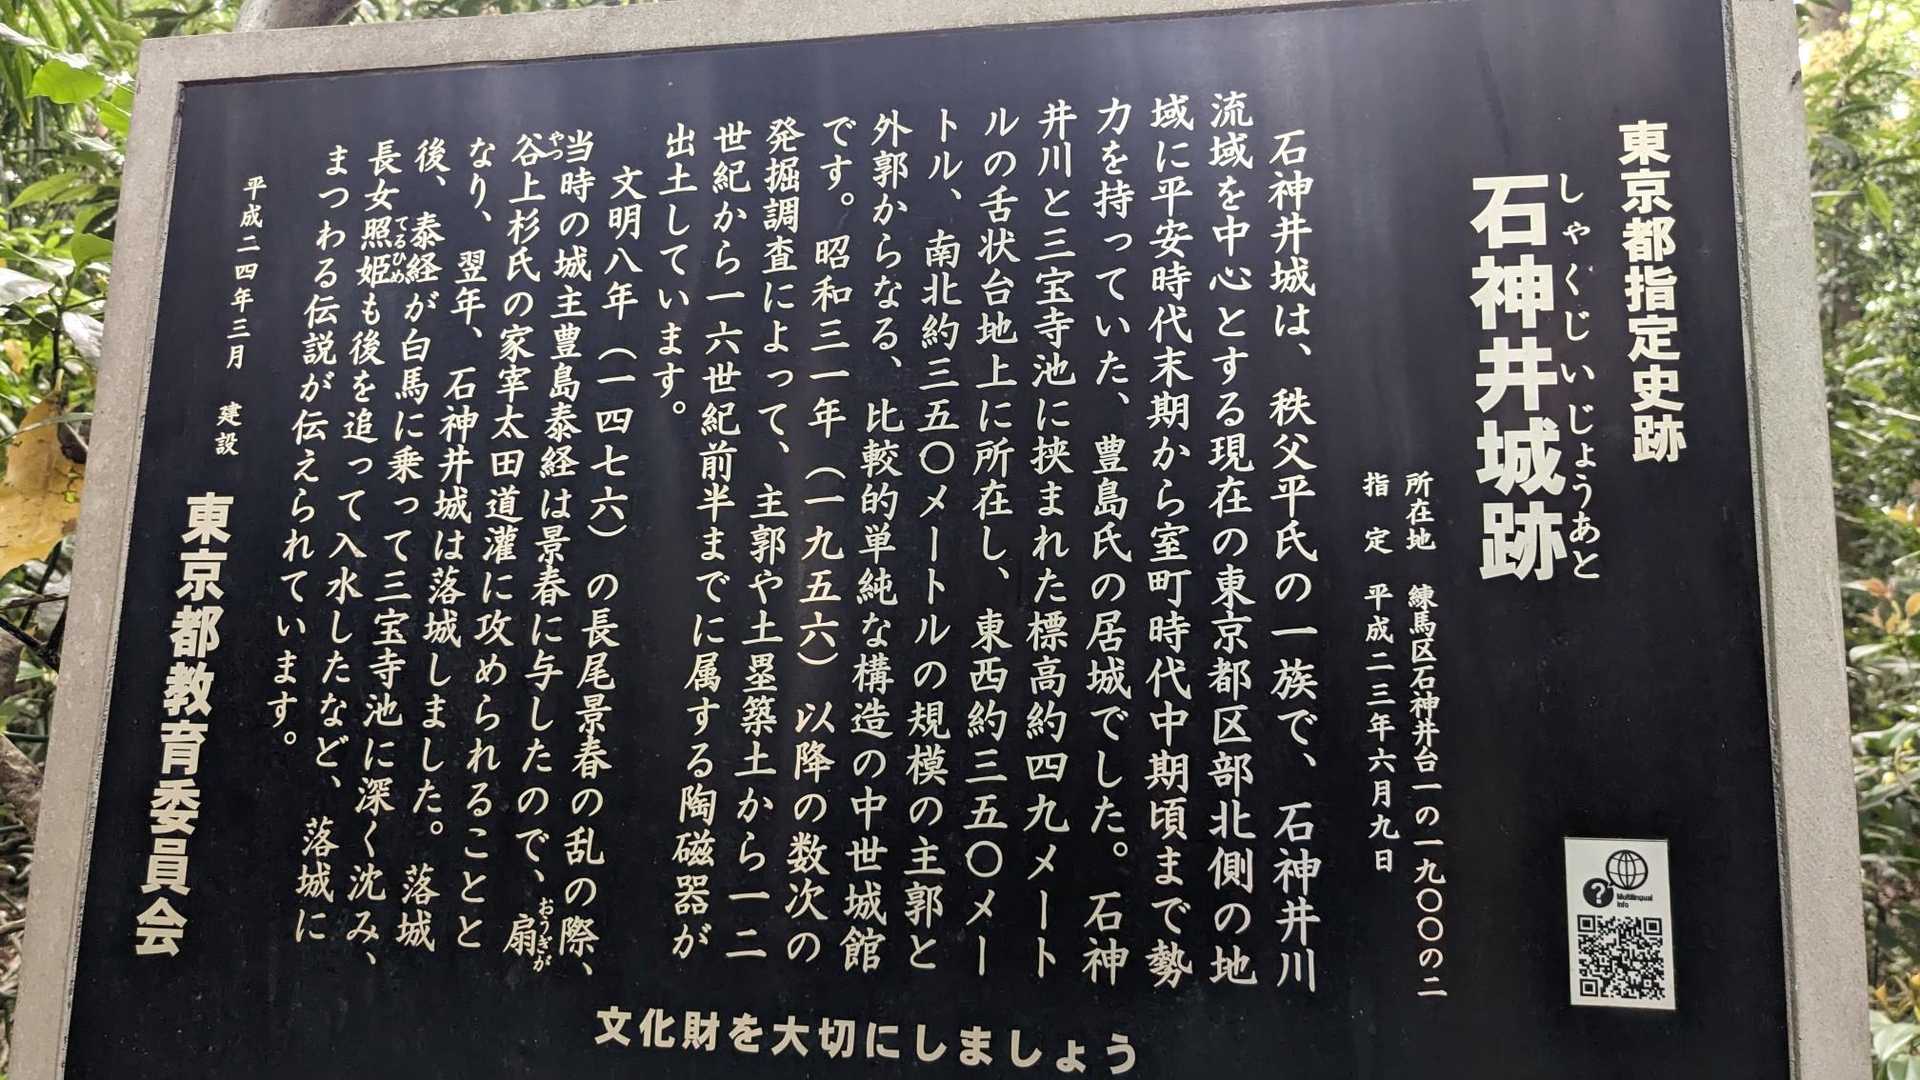 東京都指定史跡
しゃくじいじょうあと
石神井城跡
所在地　練馬区石神井台一の一九〇〇の二
指　定　平成二三年六月九日
石神井城は、秩父平氏の一族で、石神井川
流域を中心とする現在の東京都区部北側の地
域に平安時代末期から室町時代中期頃まで勢
力を持っていた、豊島氏の居城でした。石神
井川と三宝寺池に挟まれた標高約四九メート
ルの舌状台地上に所在し、東西約三五〇メー
トル、南北約三五〇メートルの規模の主郭と
外郭からなる、比較的単純な構造の中世城館
です。昭和三一年（一九五六）以降の数次の
発掘調査によって、主郭や土塁築土から一二
世紀から一六世紀前半までに属する陶磁器が
出土しています。
文明八年（一四七六）の長尾景春の乱の際、
当時の城主豊島泰経は景春に与したので、扇
おうぎが
やつ
谷上杉氏の家宰太田道灌に攻められることと
なり、翌年、石神井城は落城しました。落城
後、泰経が白馬に乗って三宝寺池に深く沈み、
てるひめ
長女照姫も後を追って入水したなど、落城に
まつわる伝説が伝えられています。
平成二四年三月　建設
東京都教育委員会
文化財を大切にしましょう
Multilingual
Info